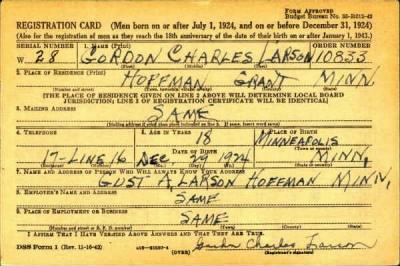 FORM APPROVED
REGISTRATION CARD (Men born on or after July 1, 1924, and on or before December 31, 1924)
(Also for the registration of men as they reach the 18th anniversary of the date of their birth on or after January 1, 1943.)
SERIAL NUMBER 1. NAME (Print) ORDER NUMBER
W 28 GORDON CHARLES LARSON 10835
2. PLACE OF RESIDENCE (Print)
HOFFMAN GRANT MINN.
[THE PLACE OF RESIDENCE GIVEN ON LINE 2 ABOVE WILL DETERMINE LOCAL BOARD
JURISDICTION; LINE 2 OF REGISTRATION CERTIFICATE WILL BE IDENTICAL]
3. MAILING ADDRESS
SAME
4. TELEPHONE 5. AGE IN YEARS PLACE OF BIRTH
18 MINNEAPOLIS
DATE OF BIRTH
17-LINE 16 DEC. 29 1924 MINN.
7. NAME AND ADDRESS OF PERSON WHO WILL ALWAYS KNOW YOUR ADDRESS
GUST A. LARSON HOFFMAN MINN.
8. EMPLOYER'S NAME AND ADDRESS
SAME
9. PLACE OF EMPLOYMENT OR BUSINESS
SAME
I AFFIRM THAT I HAVE VERIFIED ABOVE ANSWERS AND THAT THEY ARE TRUE.
DSS Form 1 (Rev. 11-16-42) (OVER) Gordon Charles Larson
(Registrant's signature)